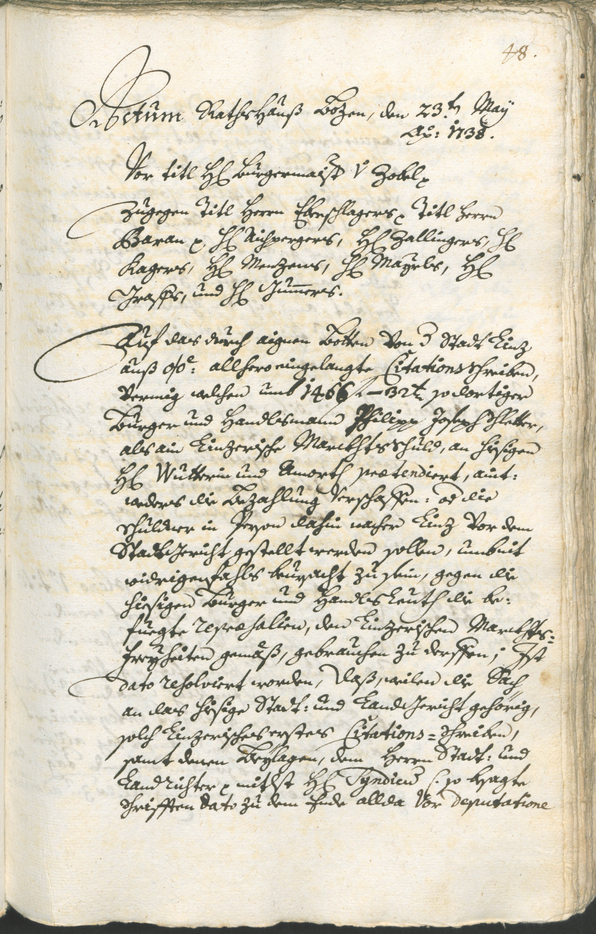 48.
Actum Rathshauß Bozen, den 23.t. May
Ao: 1738.
Vor titl H: Burgermaist. v Zobel
Zugegen Titl Herrn Eberschlagers, Titl Herrn
Baran p. H: Aichpergers, H: Zallingers, H:
Kagers, H: Menzens, H: Mayrls, H:
Graffs, und H: Gumers.
Auf das durch aignen Botten von d Statt Linz
auß allhero eingelangte Citationsschreiben,
vermig welchen umb 1466 f. — 32 t. so dortiger
Burger und Handlsmann Philipp Joseph
als ain Linzerische Marckhtsschuld, an hiesigen
H: Wutterin und Amorth praetendiert, ant:
weders die Bezahlung verschaffen: od die
schuldner in Person dahin nacher Linz vor dem
Stattgericht gestellt werden sollen, umb mit
widrigenfahls bemacht zu sein, gegen die
hiesigen Burger und Handlsleuth die be:
fuegte represalien, den Linzerischen Marckhts=
freyheiten gemäß, gebrauchen zu derffen; Ist
dato resolviert worden, daß, weilen die Sach
an das hiesige Statt: und Landgericht gehörig,
solch Linzerisches erstes Citations=schreiben,
samt denen Beylagen, dem Herrn Statt: und
Landrichter p mitlst H: Syndicus /: so besagte
schrifften dato zu dem Ende allda vor deputatione